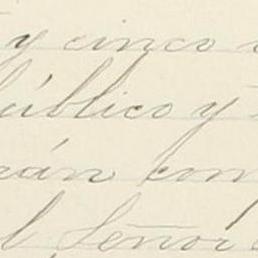 y cinco
público y
rán con
l Señor